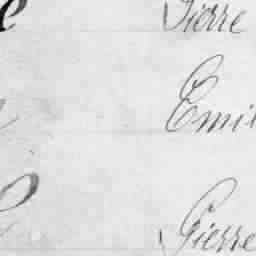 Pierre
Emil
Pierre